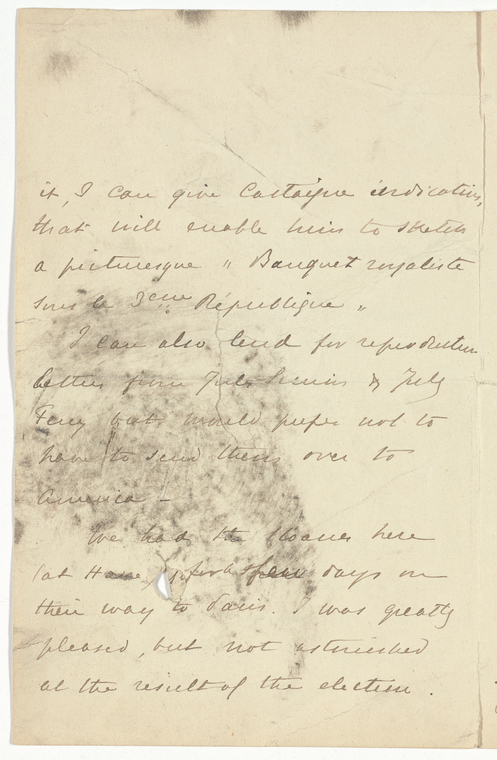 it, I can give Castaigne indications,
that will enable him to sketch
a picturesque " Banquet royaliste
sous la 3eme République "
I can also lend for reproduction
letters from Jules Simon & July
Ferry but would prefer not to
have to send them over to
America —
We had the Sloanes here
(at Havre) for a few days on
their way to Paris. I was greatly
pleased, but not astonished
at the result of the election.